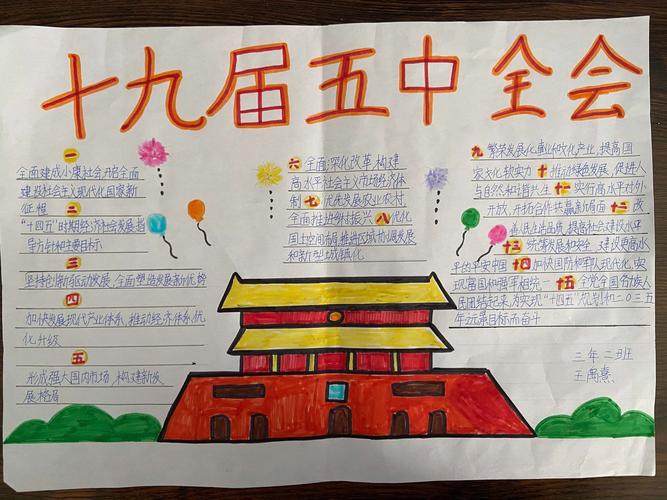 十九届五中全会
一
全面建成小康社会开启全面
建设社会主义现代化国家新
征程 二
"十四五"时期经济社会发展指
导方针和主要目标
三
坚持创新驱动发展,全面塑造发展新优势
四
加快发展现代产业体系,推动经济体系优
化升级
五
形成强大国内市场 构建新发
展格局
六 全面深化改革 构建
高水平社会主义市场经济体
制 七 优先发展农业农村
全面推进乡村振兴 八 优化
国土空间布局,推进区域协调发展
和新型城镇化
九 繁荣发展文化事业和文化产业,提高国
家文化软实力 十 推动绿色发展,促进人
与自然和谐共生 十一 实行高水平对外
开放,开拓合作共赢新局面 十二 改
善人民生活品质,提高社会建设水平
十三 统筹发展和安全 建设更高水
平的平安中国 十四 加快国防和军队现代化,实
现富国和强军相统一 十五 全党全国各族人
民团结起来,为实现"十四五"规划和二〇三五
年远景目标而奋斗
三年二班
王禹熹